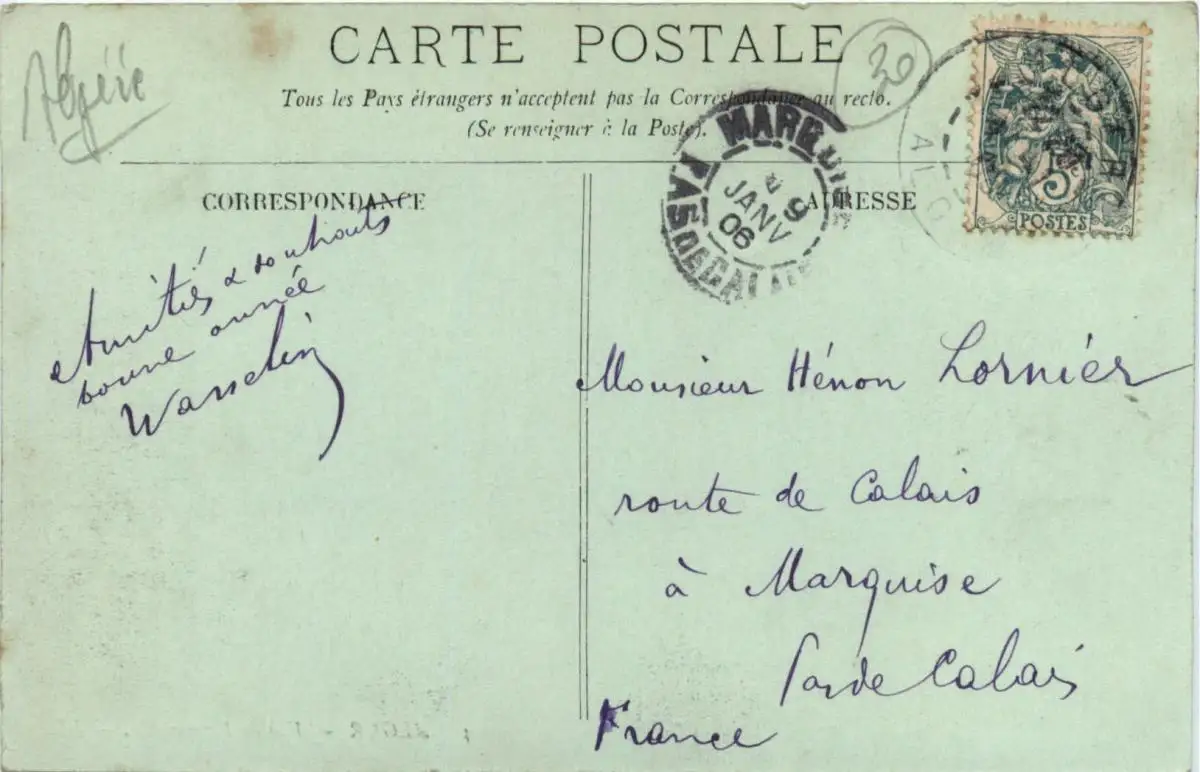 Algérie
20
CARTE POSTALE
Tous les Pays étrangers n'acceptent pas la Correspondance au recto.
(Se renseigner à la Poste).
CORRESPONDANCE
ADRESSE
MARQUISE
9
JANV
06
PAS DE CALAIS
ALG
5
POSTES
Amitiés & souhaits
bonne année
Wasselin
Monsieur Hénon Lornier
route de Calais
à Marquise
Pas de Calais
France